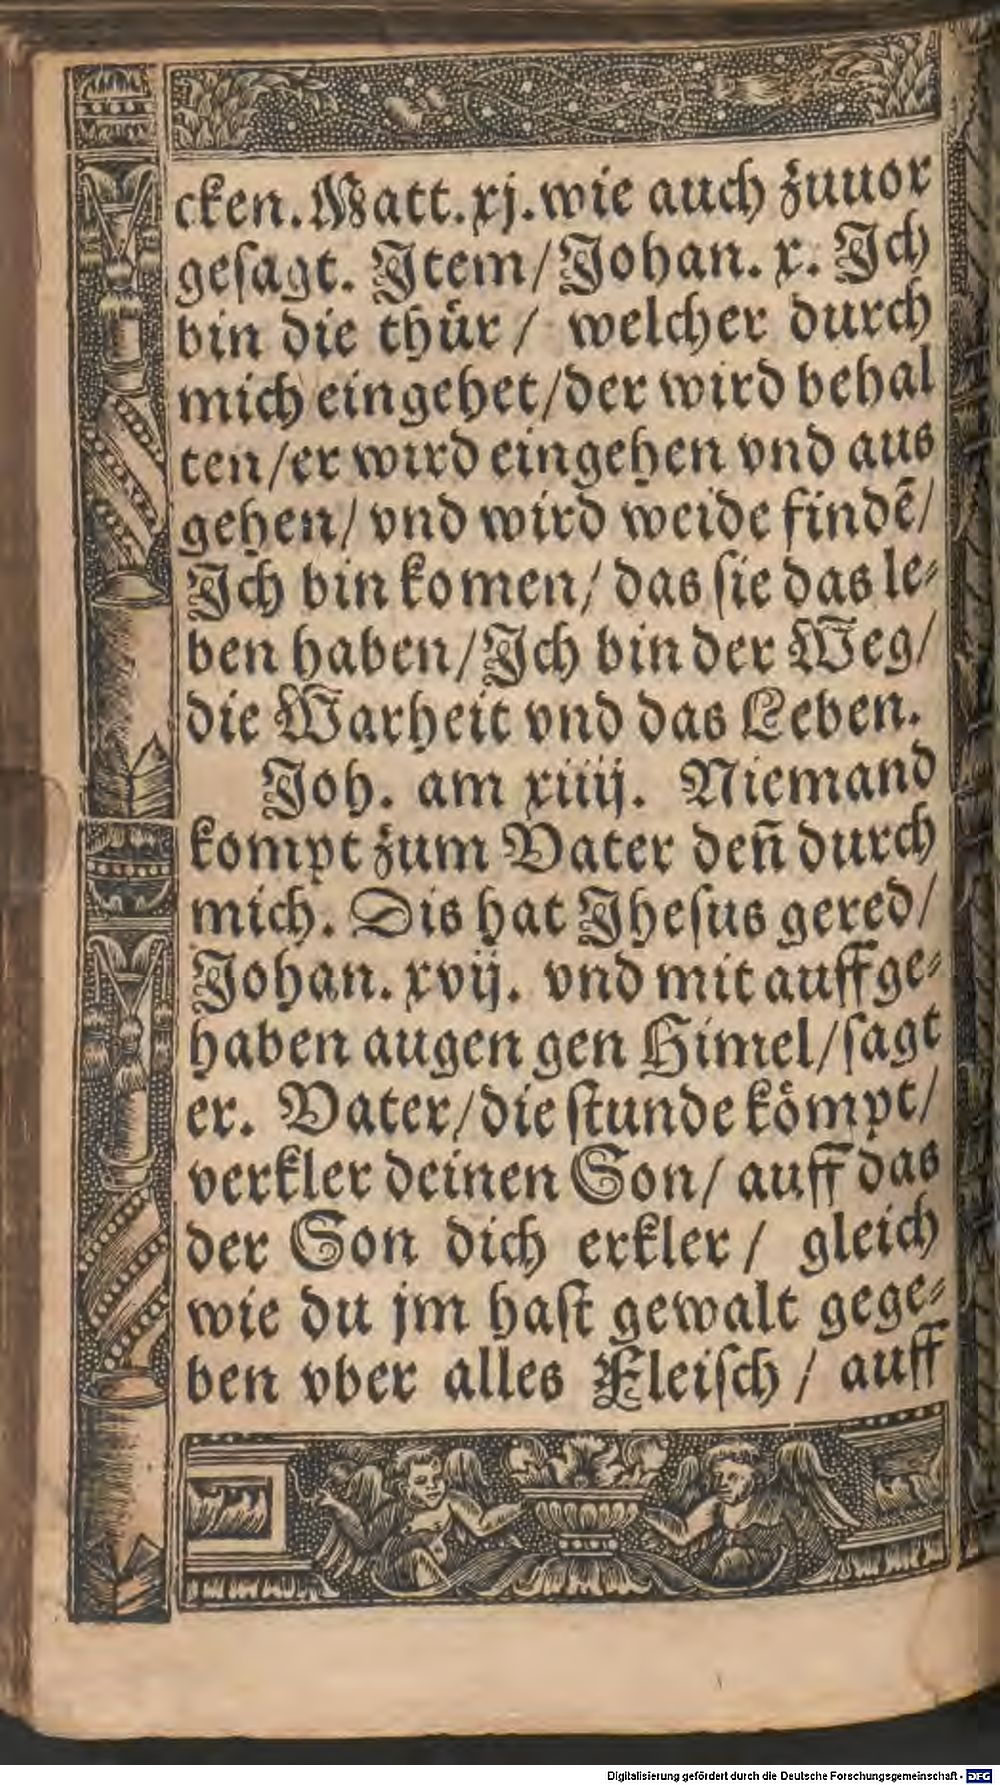 cken. Matt. xj. wie auch zuuor
gesagt. Item/ Johan. x. Ich
bin die thür/ welcher durch
mich eingehet/der wird behal
ten/er wird eingehen vnd aus
gehen/ vnd wird weide findē/
Ich bin komen/ das sie das le-
ben haben/ Ich bin der Weg/
die Warheit vnd das Leben.
Joh. am xiiij. Niemand
kompt zum Vater deñ durch
mich. Dis hat Jhesus gered/
Johan. xvij. vnd mit auffge-
haben augen gen Himel/sagt
er. Vater/die stunde kömpt/
verkler deinen Son/ auff das
der Son dich erkler/ gleich
wie du jm hast gewalt gege-
ben vber alles Fleisch/ auff
Digitalisierung gefördert durch die Deutsche Forschungsgemeinschaft - DFG